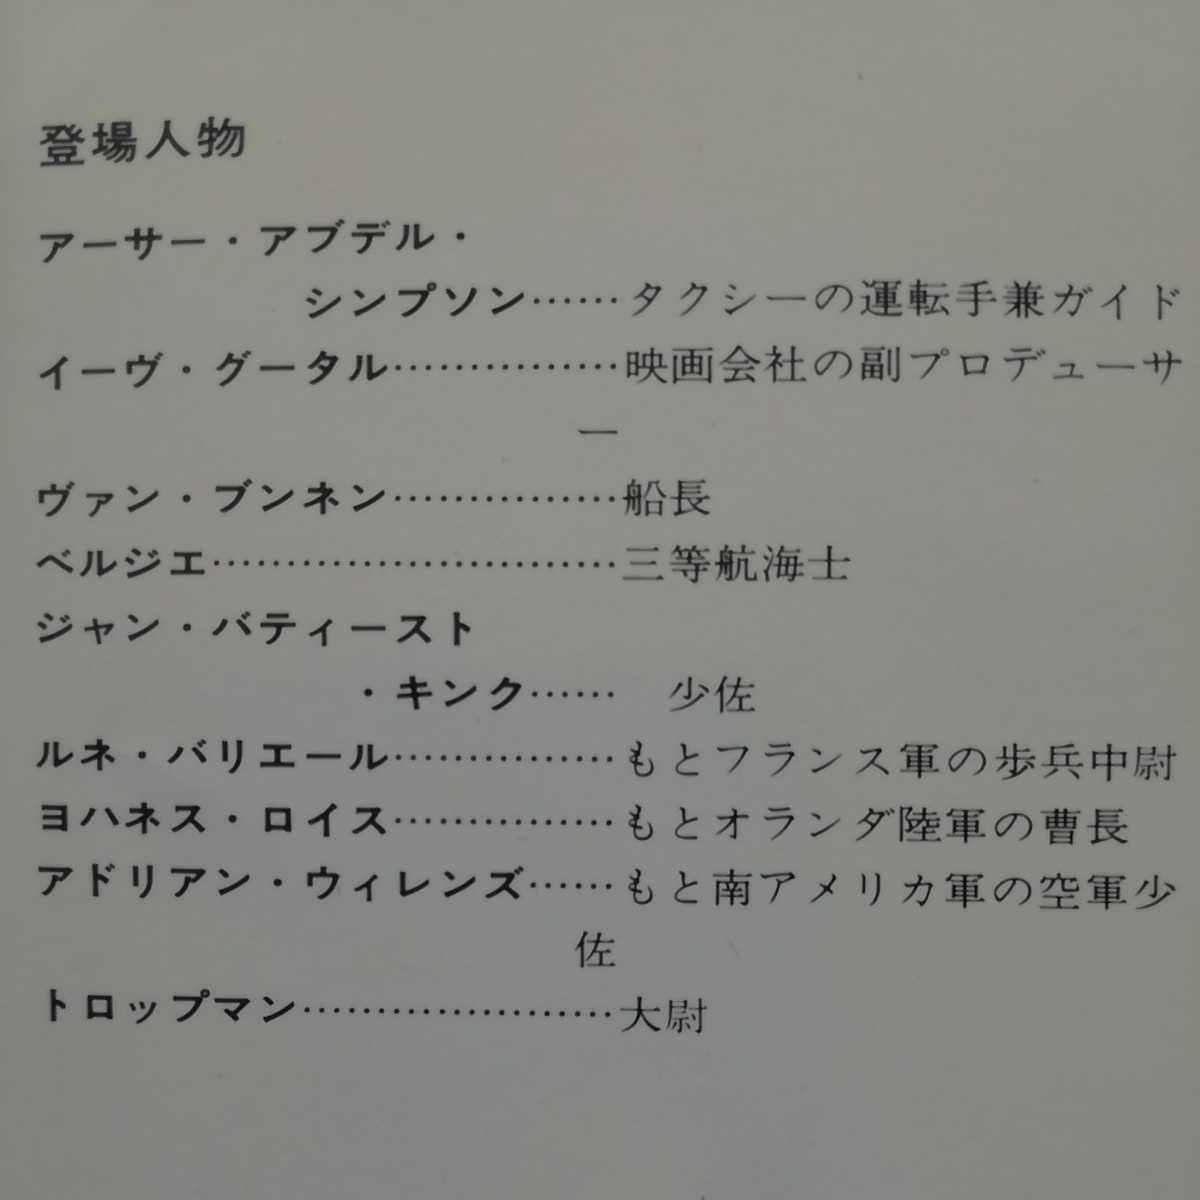 登場人物
アーサー・アブデル・
シンプソン……タクシーの運転手兼ガイド
イーヴ・グータル……………映画会社の副プロデューサ
ー
ヴァン・ブンネン……………船長
ベルジエ…………………………三等航海士
ジャン・バティースト
・キンク…… 少佐
ルネ・バリエール……………もとフランス軍の歩兵中尉
ヨハネス・ロイス……………もとオランダ陸軍の曹長
アドリアン・ウィレンズ……もと南アメリカ軍の空軍少
佐
トロップマン…………………大尉